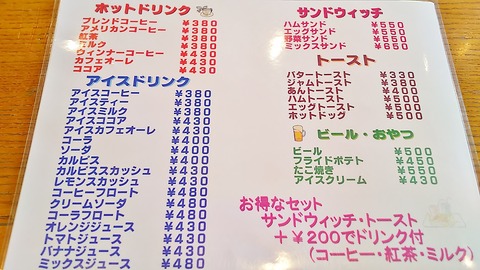 ホットドリンク
ブレンドコーヒー ¥380
アメリカンコーヒー ¥380
紅茶 ¥380
ミルク ¥380
ウィンナーコーヒー ¥430
カフェオーレ ¥430
ココア ¥430
アイスドリンク
アイスコーヒー ¥380
アイスティー ¥380
アイスミルク ¥380
アイスココア ¥430
アイスカフェオーレ ¥430
コーラ ¥400
ソーダ ¥400
カルピス ¥400
カルピススカッシュ ¥430
レモンスカッシュ ¥430
コーヒーフロート ¥480
クリームソーダ ¥480
コーラフロート ¥480
オレンジジュース ¥430
トマトジュース ¥430
バナナジュース ¥430
ミックスジュース ¥480
サンドウィッチ
ハムサンド ¥550
エッグサンド ¥550
野菜サンド ¥550
ミックスサンド ¥650
トースト
バタートースト ¥330
ジャムトースト ¥380
あんトースト ¥400
ハムトースト ¥500
エッグトースト ¥500
ホットドッグ ¥500
ビール・おやつ
ビール ¥500
フライドポテト ¥450
たこ焼き ¥550
アイスクリーム ¥430
お得なセット
サンドウィッチ・トースト
+¥200でドリンク付
(コーヒー・紅茶・ミルク)